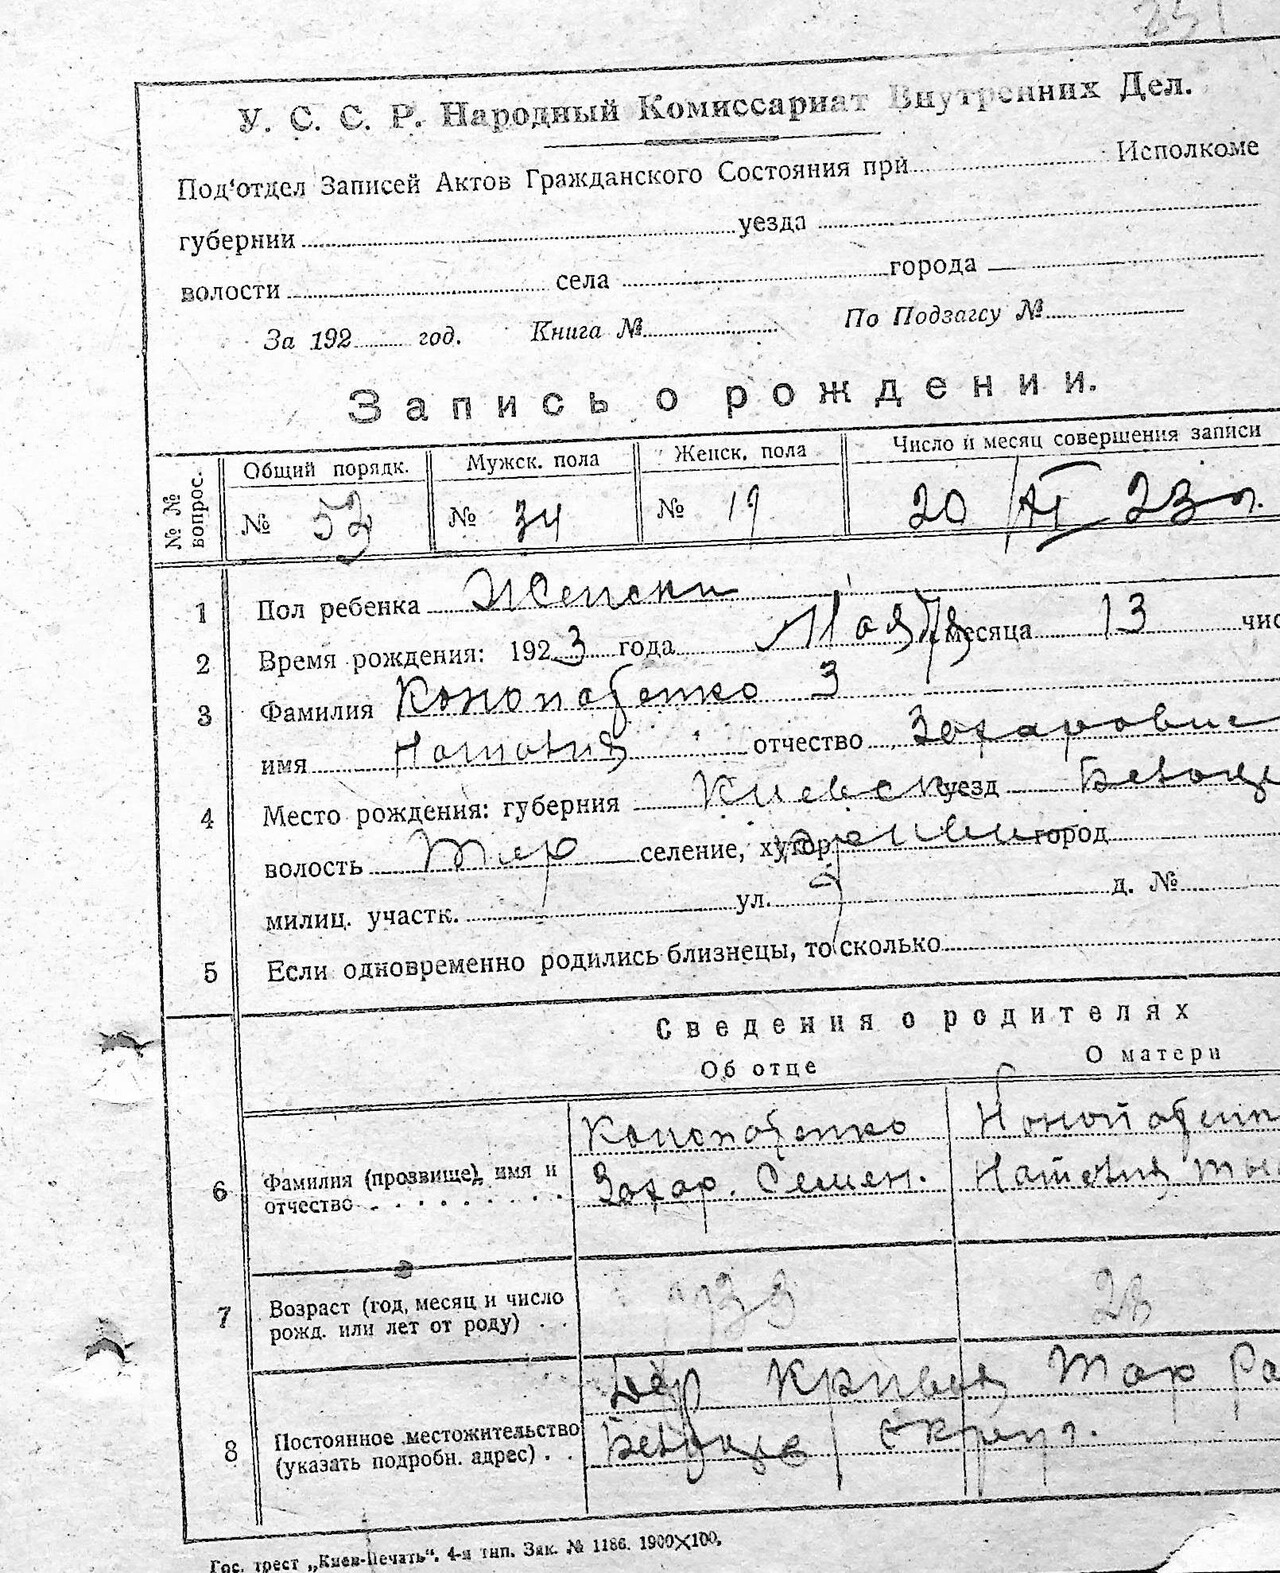 251
У. С. С. Р. Народный Комиссариат Внутренних Дел.
Под'отдел Записей Актов Гражданского Состояния при Исполкоме
губернии уезда
волости села города
За 192 год. Книга № По Подзагсу №
Запись о рождении.
№ № вопрос. Общий порядк. Мужск. пола Женск. пола Число и месяц совершения записи
№ 53 № 34 № 19 20/XI 23 г.
1 Пол ребенка Женски
2 Время рождения: 1923 года Ноября месяца 13 чис
3 Фамилия Конопаценко З
имя Наталия отчество Захаровис
4 Место рождения: губерния Киевск уезд Белоце
волость Тар селение, хутор город
милиц. участк. ул. д. №
5 Если одновременно родились близнецы, то сколько
Сведения о родителях
Об отце О матери
6 Фамилия (прозвище), имя и отчество Конопаценко Захар. Семен. Наталия
7 Возраст (год, месяц и число рожд. или лет от роду) 33 28
8 Постоянное местожительство (указать подробн. адрес) Дер Кривая Тар Ра
Белоцерк округ.
Гос. трест „Киев-Печать“. 4-я тип. Зак. № 1186. 1900×100.